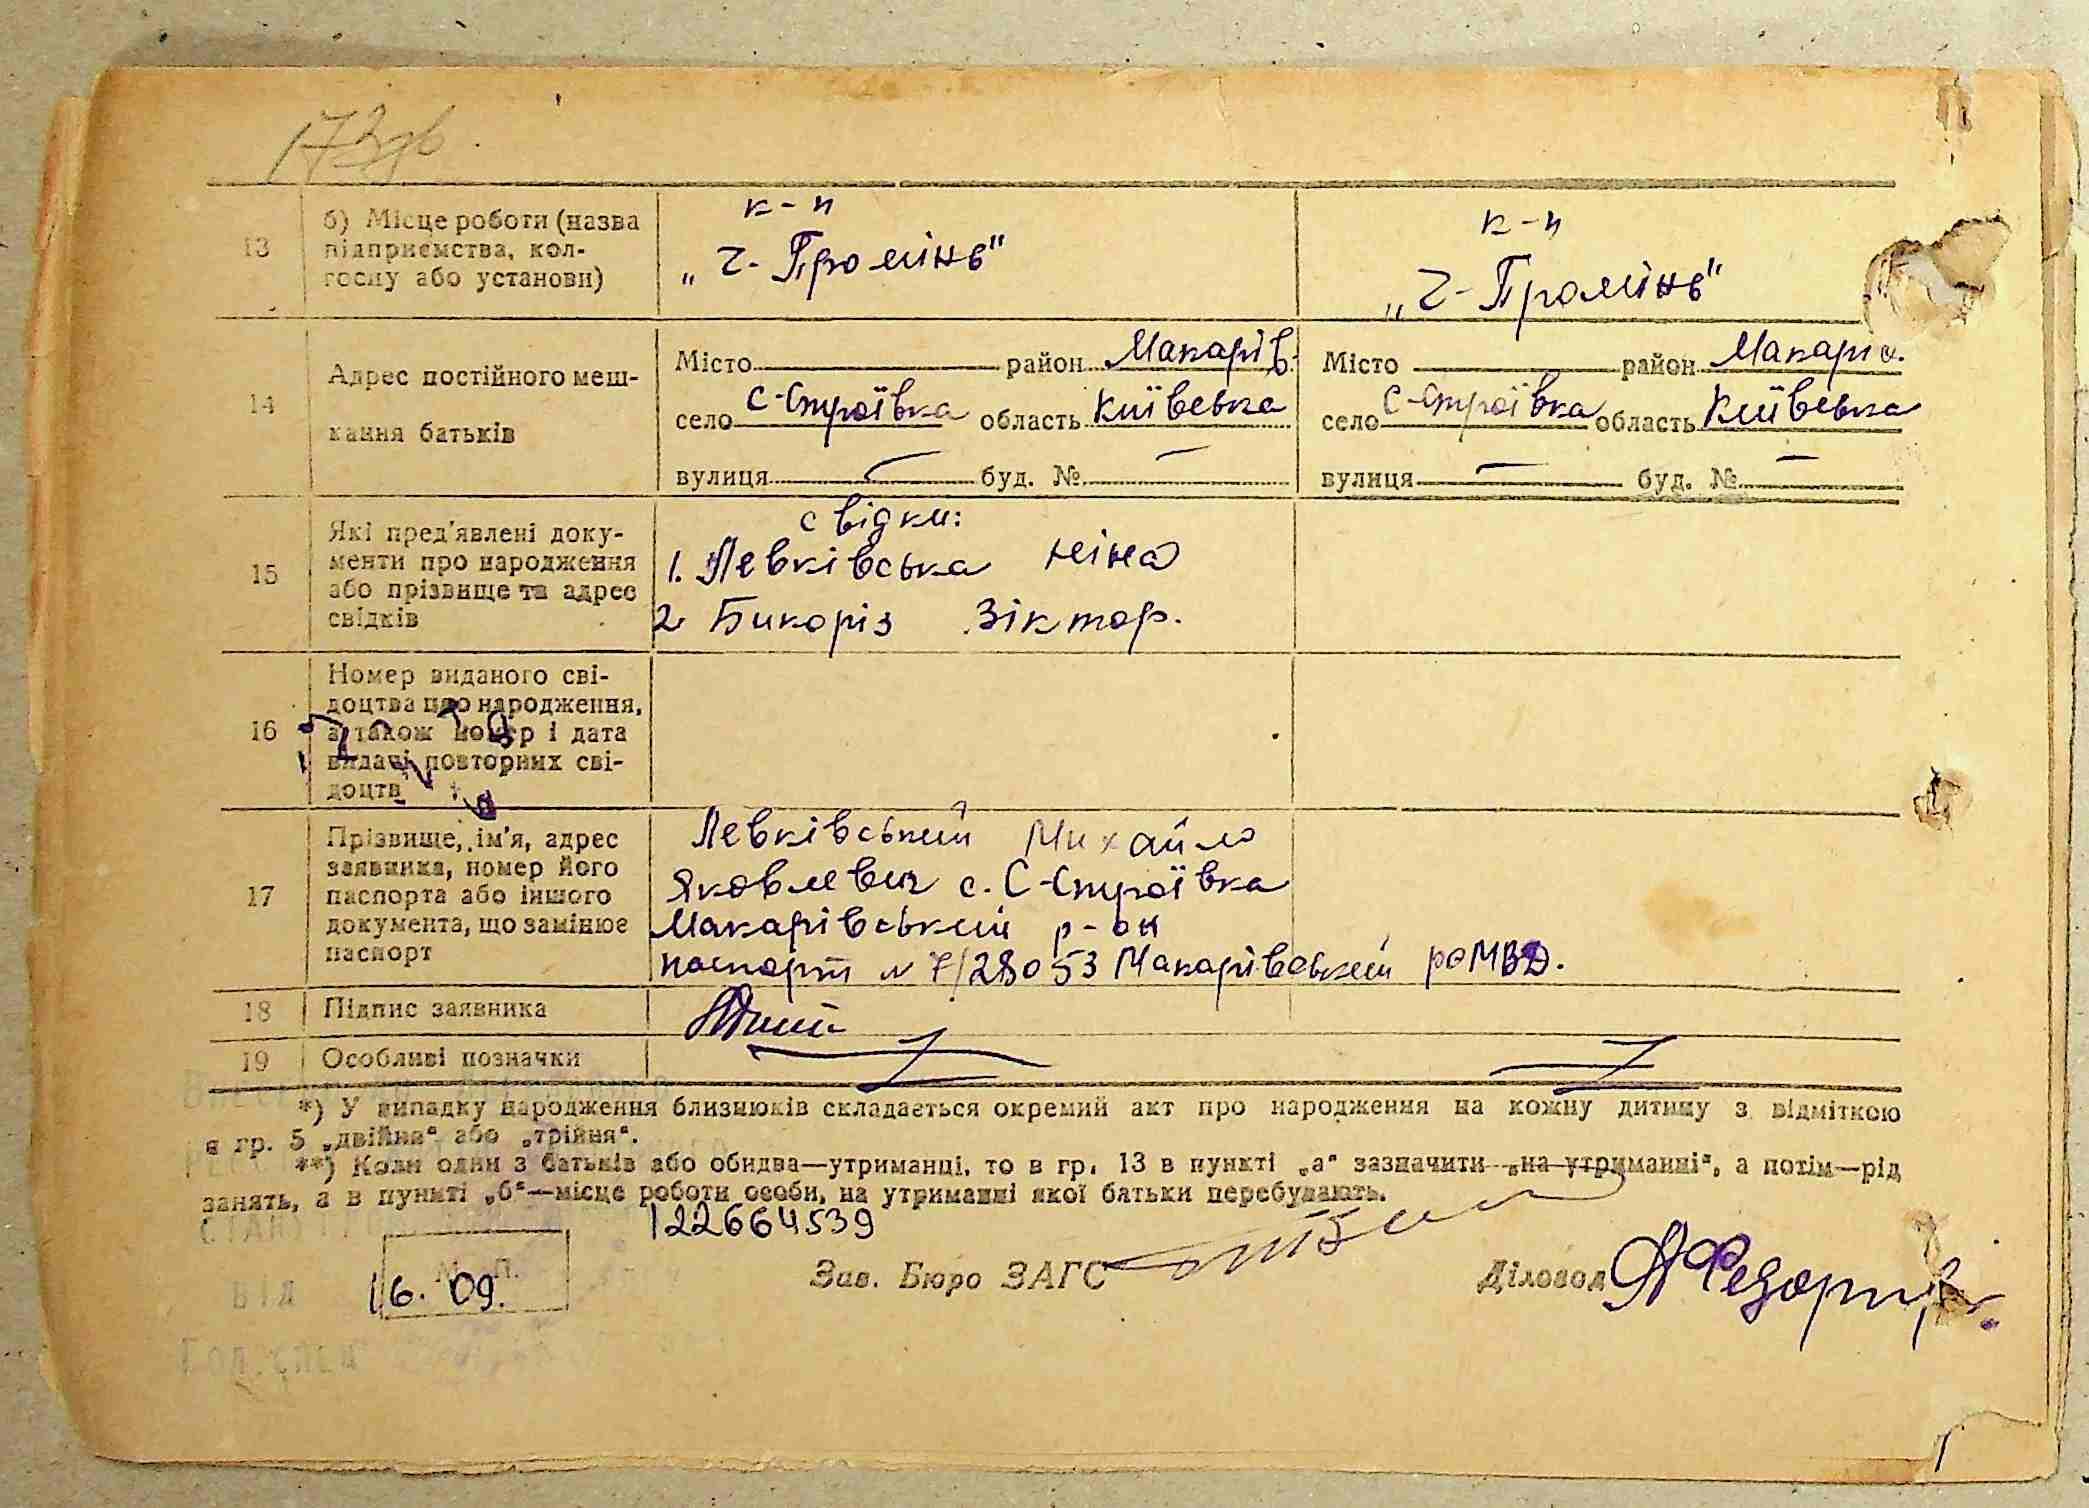 173зв.
13
б) Місце роботи (назва
підприємства, кол-
госпу або установи)
к-п
„Ч-Промінь"
к-п
„Ч-Промінь"
14
Адрес постійного меш-
кання батьків
Місто район Макарів.
село С-Строївка область Київська
вулиця — буд. № —
Місто район Макарів.
село С-Строївка область Київська
вулиця — буд. № —
15
Які пред'явлені доку-
менти про народження
або прізвище та адрес
свідків
свідки:
1. Левківська Ніна
2 Бикоріз Віктор.
16
Номер виданого сві-
доцтва про народження,
а також номер і дата
видачі повторних сві-
доцтв
17
Прізвище, ім'я, адрес
заявника, номер його
паспорта або іншого
документа, що замінює
паспорт
Левківський Михайло
Яковлевич с. С-Строївка
Макарівський р-он
паспорт № 7/28053 Макарівський роМВД.
18
Підпис заявника
19
Особливі позначки
*) У випадку народження близнюків складається окремий акт про народження на кожну дитину з відміткою
в гр. 5 „двійня" або „трійня".
**) Коли один з батьків або обидва—утриманці, то в гр. 13 в пункті „а" зазначити „на утриманні", а потім—рід
занять, а в пункті „б"—місце роботи особи, на утриманні якої батьки перебувають.
122664539
М. П.
від 16. 09.
Зав. Бюро ЗАГС
Діловод